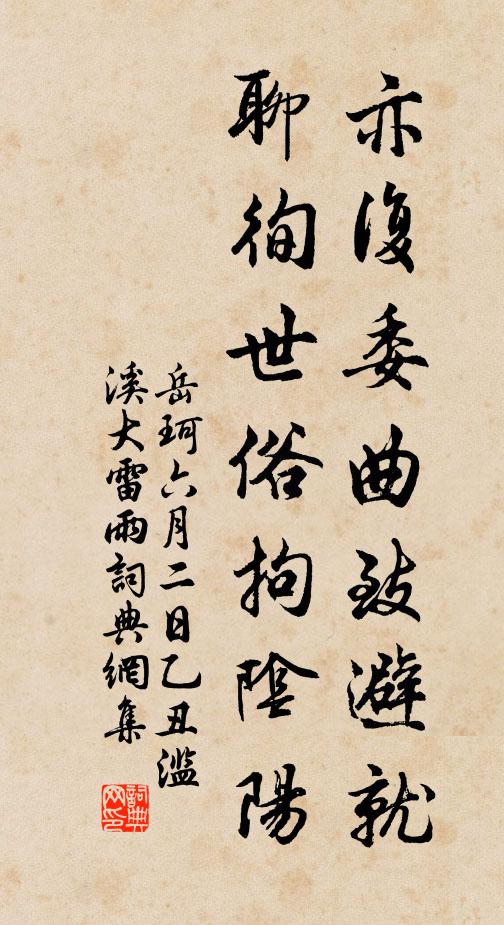 亦復委曲致避就
聊徇世俗拘陰陽
岳珂六月二日乙丑濫
溪大雷雨詞典網集
詞典網印